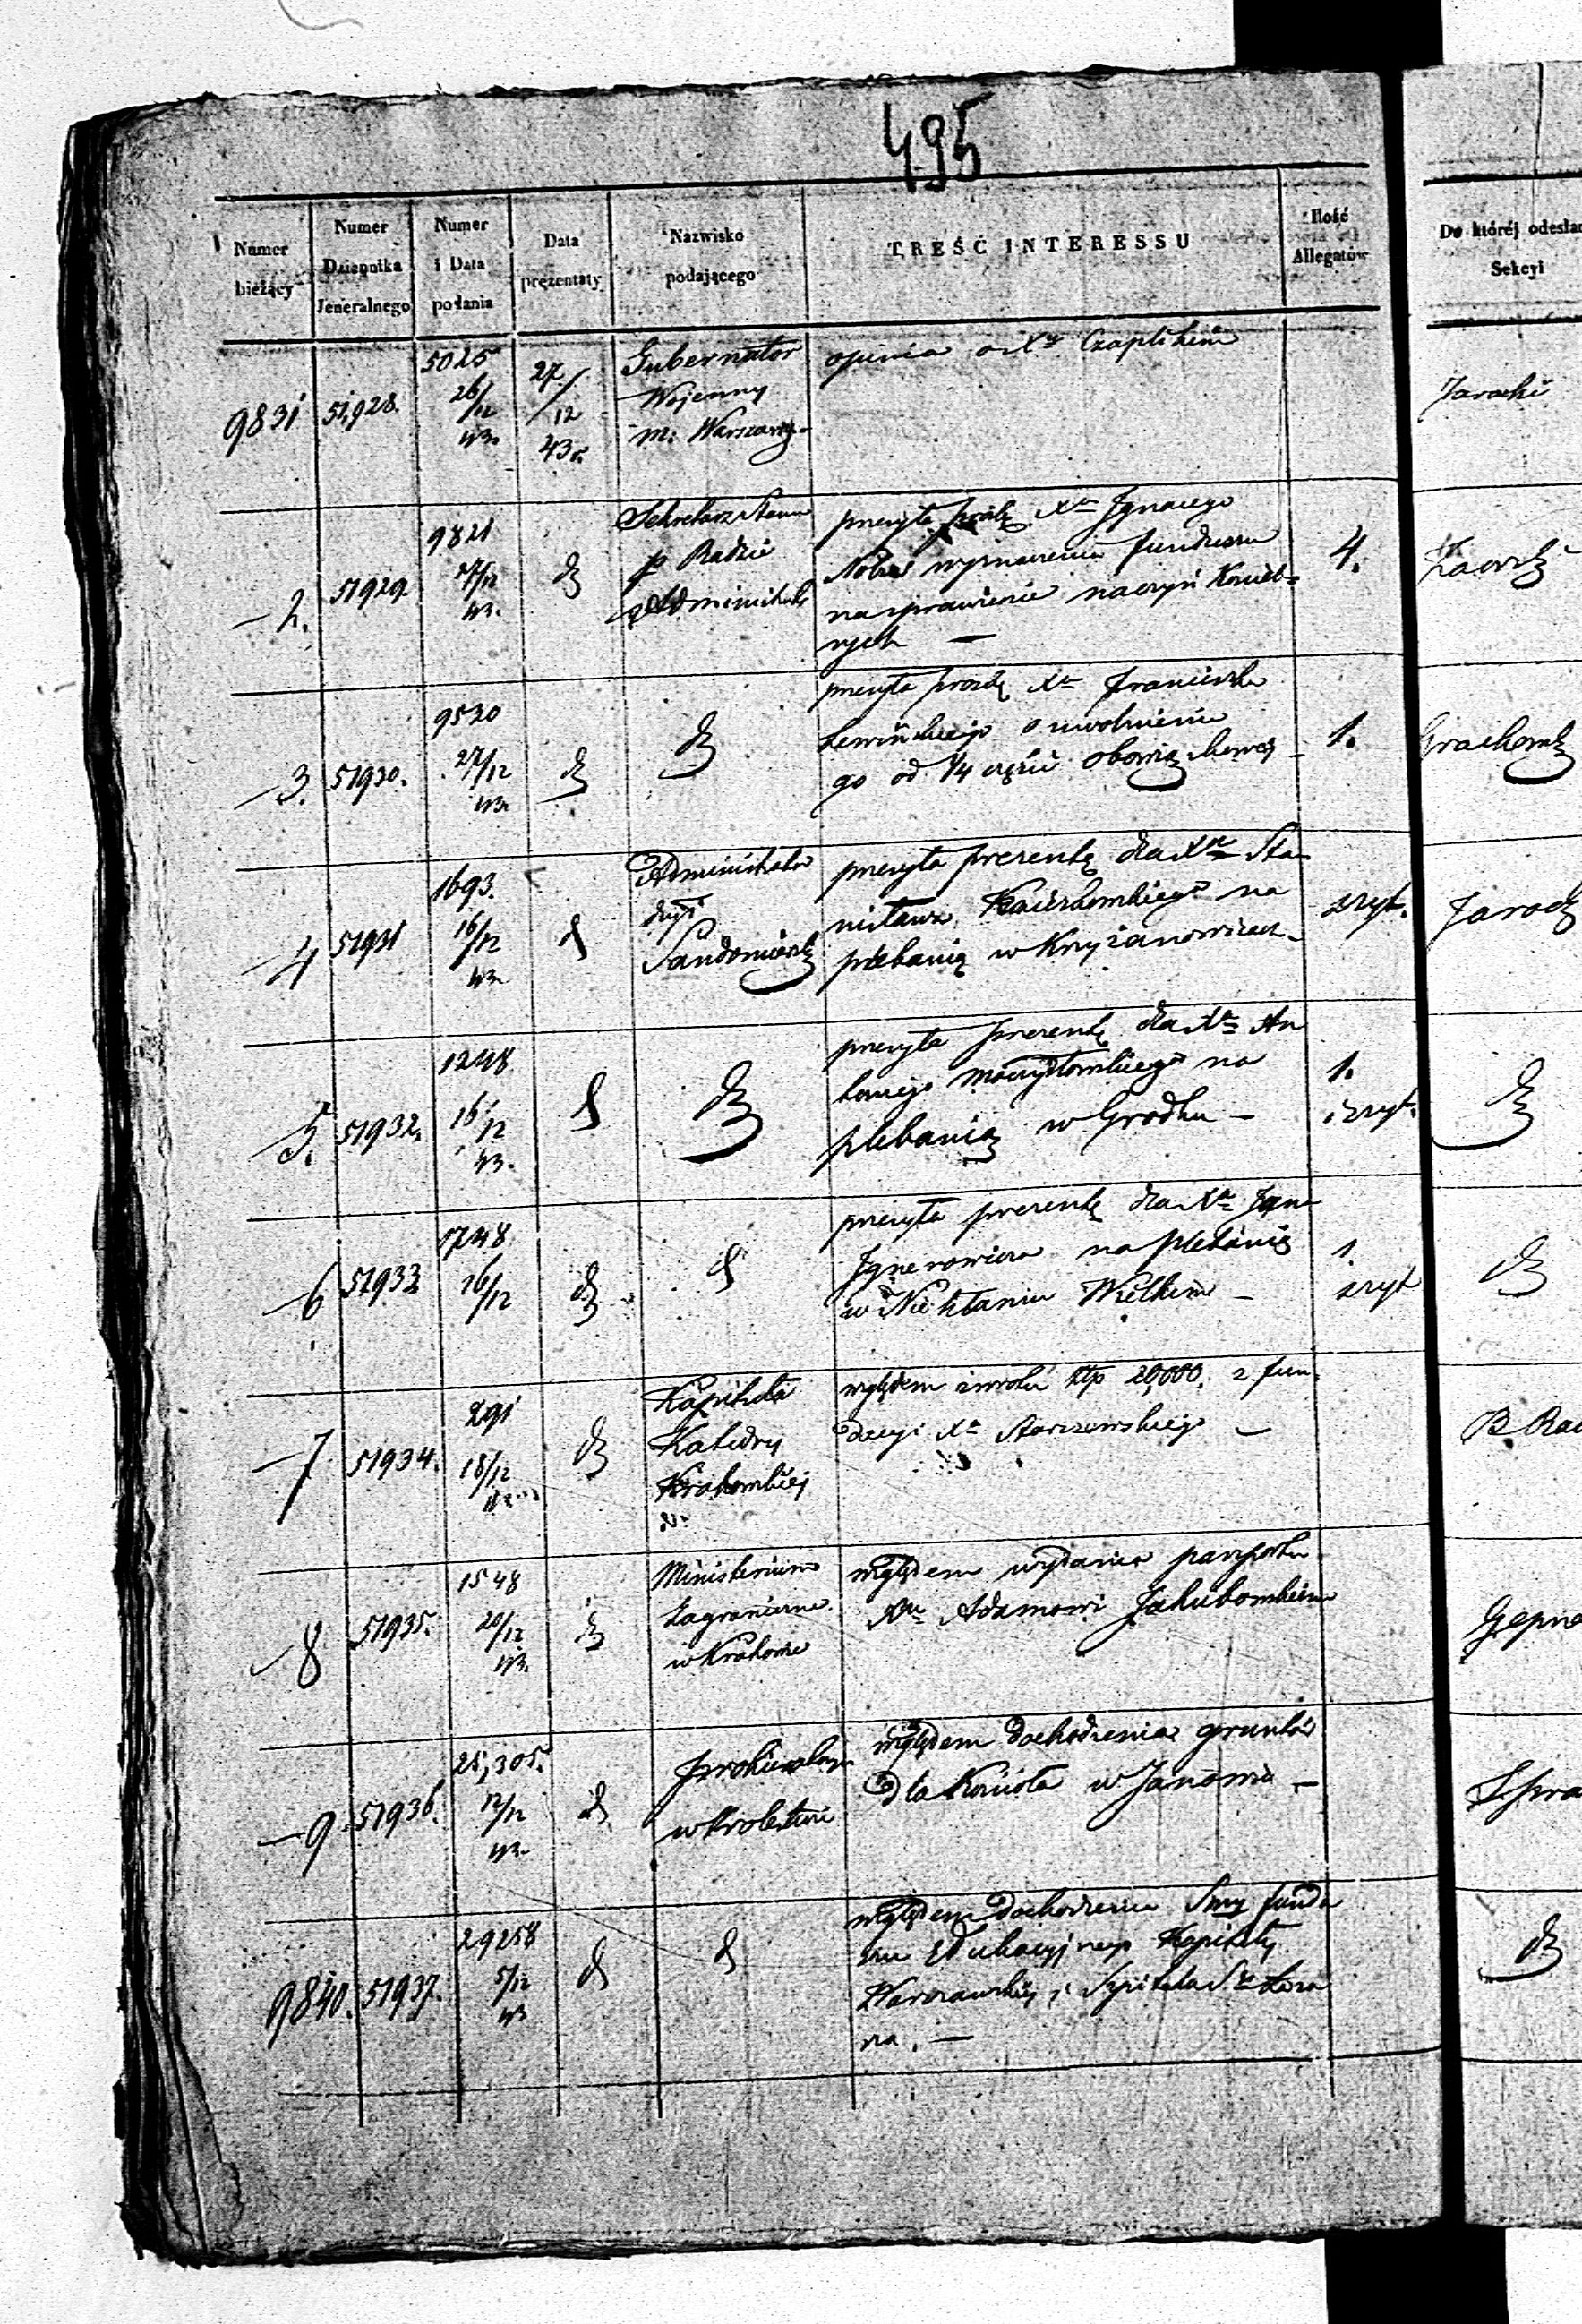 495
Numer bieżący
Numer Dziennika Jeneralnego
Numer i Data podania
Data prezentaty
Nazwisko podającego
TREŚĆ INTERESSU
Ilość Allegatów
Do któréj odesłan
Sekcyi
9831 51,928. 5025 26/12 43. 27/12 43 r. Gubernator
Wojenny
m: Warszawy
opinia o Xu Czaplickim
Jaracki
2. 51929 9821 27/12 43. Sekretarz Stanu
p Radzie
Administ
przesyła prośbę Xa Ignacego
wyznaczenie funduszu
na sprawienie naczyń Kościel=
nych —
4.
3. 51930. 9530 27/12 43.
przesyła prośbę Xa Franciszka
Lewińskiego o uwolnienie
go od 1/4 części obowiązkowej
1.
4 51931 1693. 16/12 43. Administrator
dyi
Sandomiersk
przesyła prezentę dla Xa Sta
nisława na
plebanią w Krzyżanowicach
zszyt.
5. 51932. 1248 16/12 43.
przesyła prezentę dla Xa An
toniego na
plebanią w Grodku —
1.
zszyt.
6 51933 1748 16/12
przesyła prezentę dla Xa Igna
na plebanią
w Niekłaniu Wielkim —
1
zszyt
7 51934. 291 18/12 Kapituła
Katedry
Krakowskiej
względem zwrotu Złp 20,000. z fun
dacyi Xa Starzewskiego —
B Rac
8 51935. 1548 20/12 43. Ministerium
Zagraniczne
w Krakowie
względem wydania paszportu
Xu Adamowi Jakubowskiemu
Gepne
9 51936. 25,305. 12/12 43. Prokurator
w Królestwie
względem dochodzenia gruntów
dla Kościoła w Janowie —
Spra
9840. 51937. 29258 5/12 43
względem dochodzenia Smy fundu
szu Edukacyjnego Kapituły
Warszawskiej i Szpitala S. Łaza
rza. —